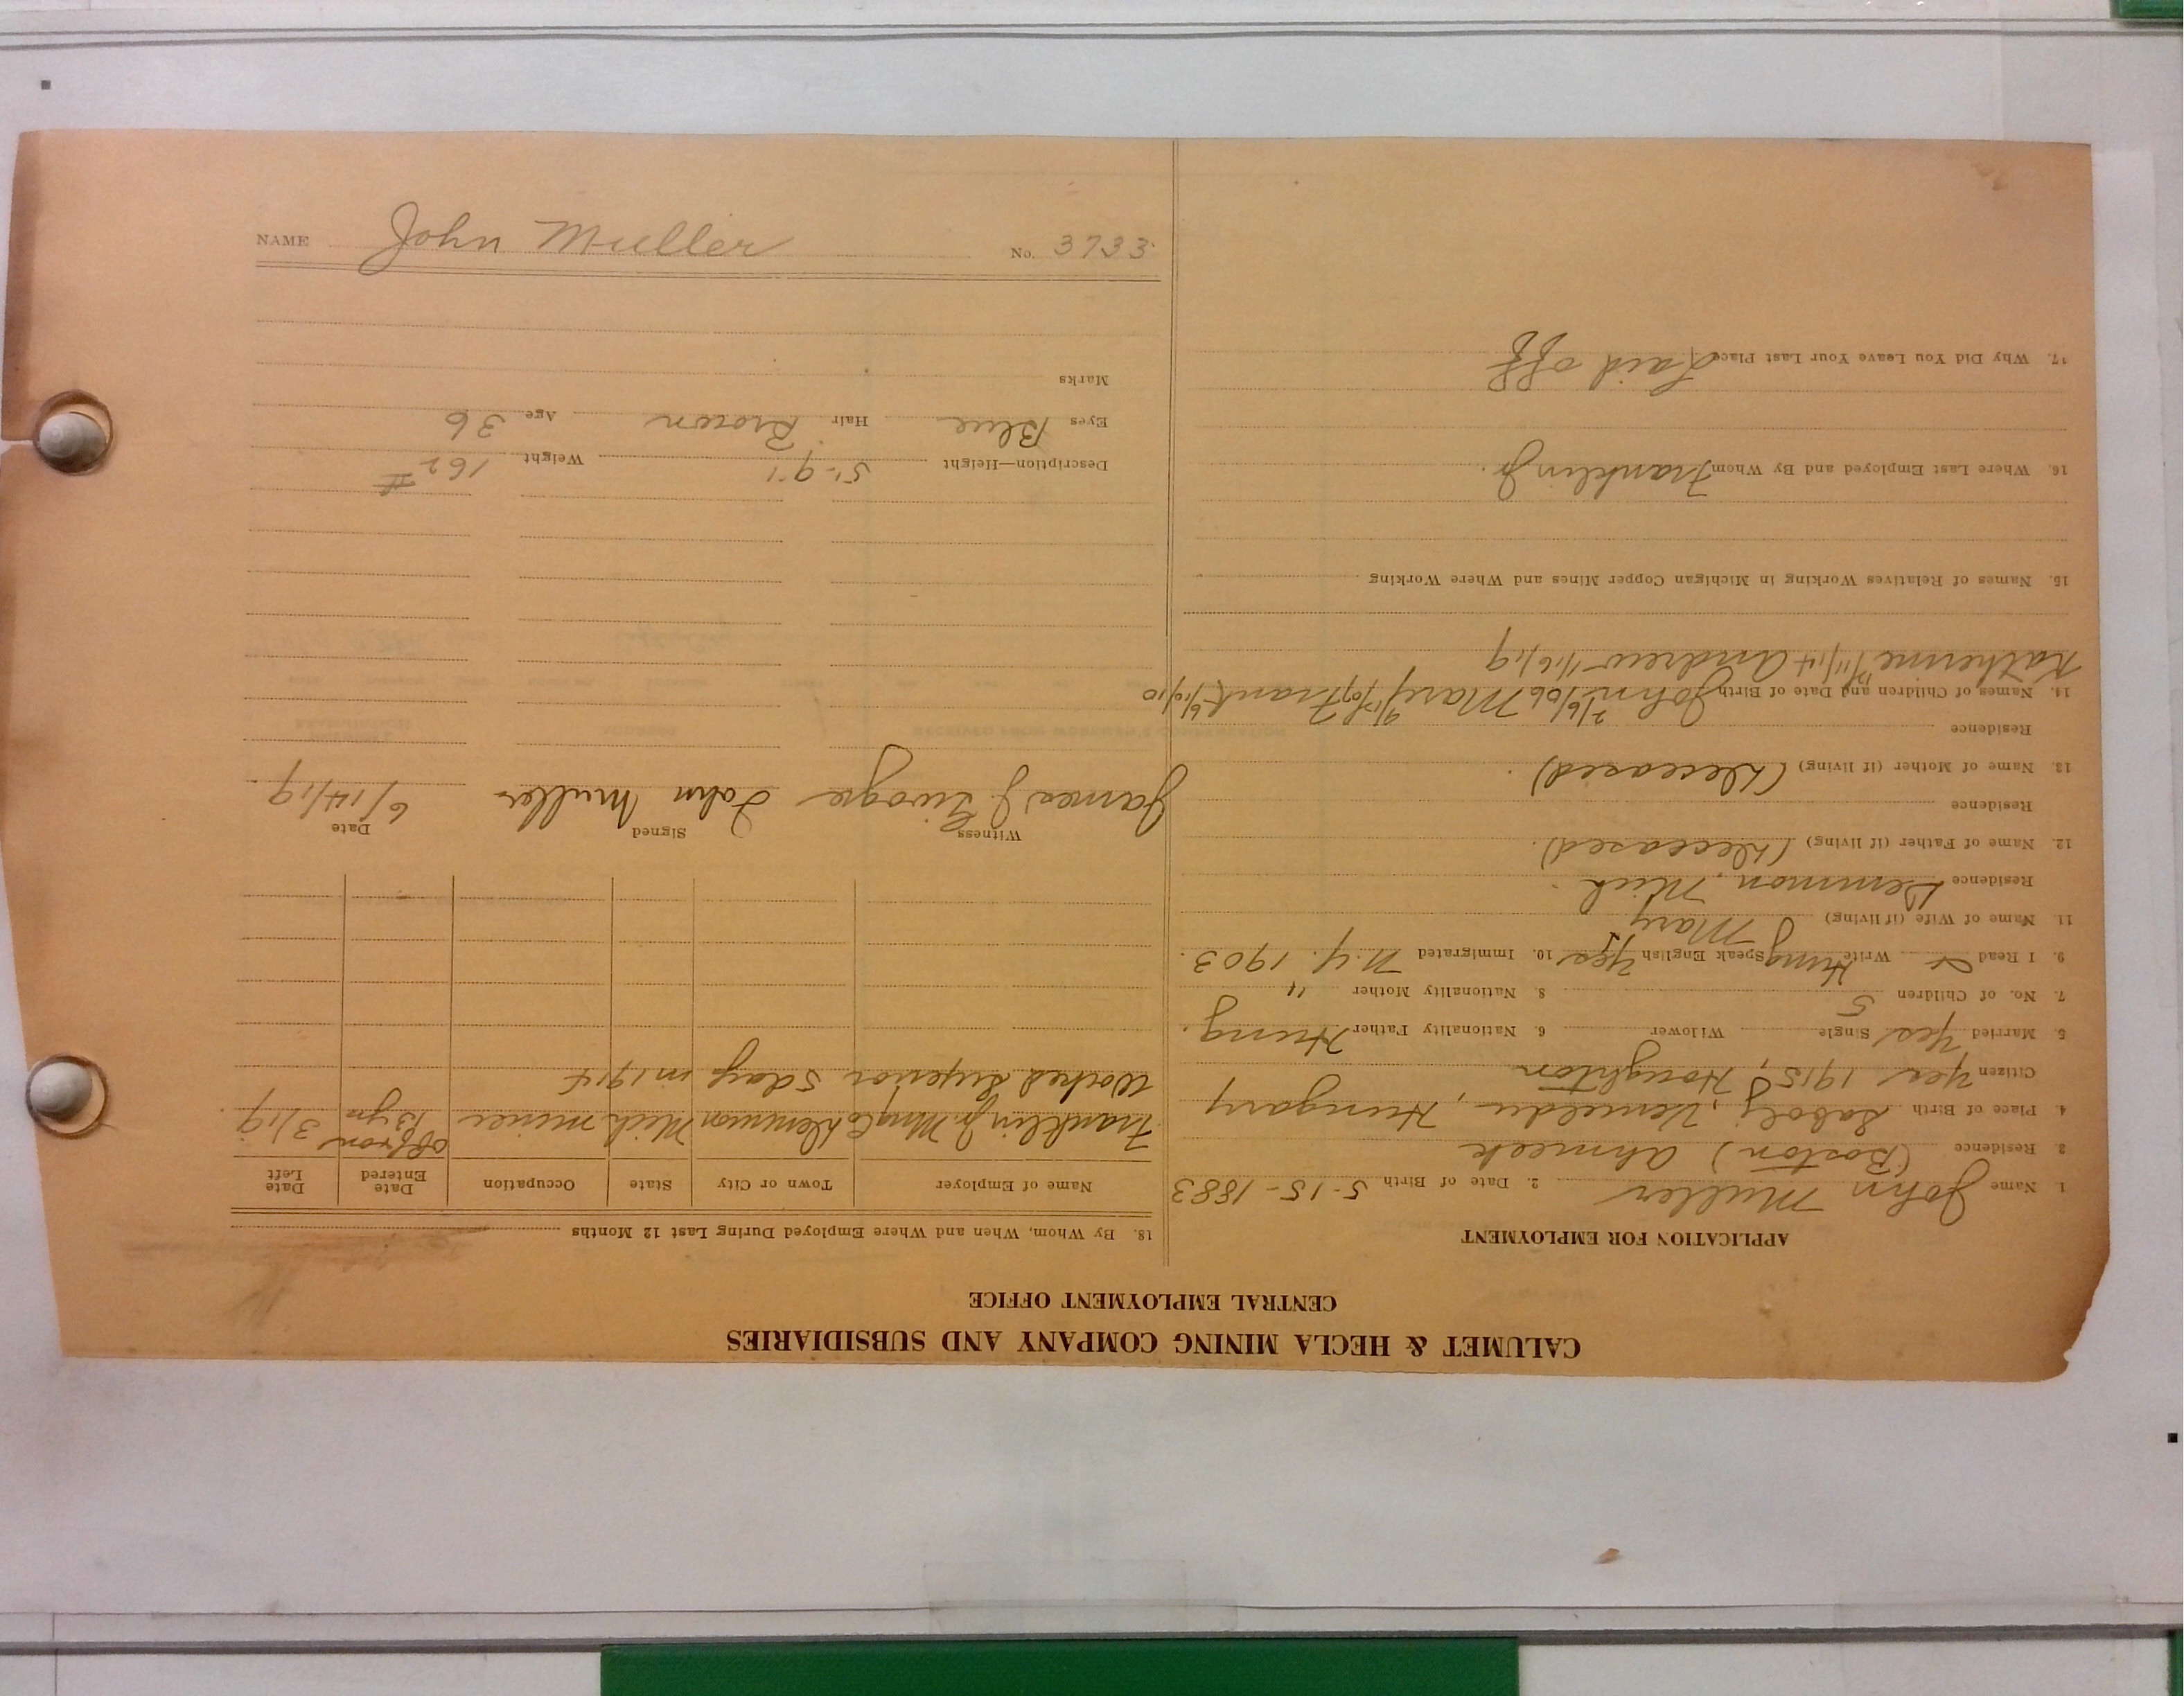 CALUMET & HECLA MINING COMPANY AND SUBSIDIARIES
CENTRAL EMPLOYMENT OFFICE
APPLICATION FOR EMPLOYMENT
1. Name John Muller 2. Date of Birth 5-15-1883
3. Residence (Boston) Ahmeek
4. Place of Birth Saboly, Hungary
Citizen Yes 1915, Houghton
5. Married Yes Single Widower 6. Nationality Father Hung.
7. No. of Children 5 8. Nationality Mother "
9. I Read & Write Hung Speak English Yes 10. Immigrated N.Y. 1903.
11. Name of Wife (if living) Mary
Residence Demmon, Mich.
12. Name of Father (if living) (Deceased).
Residence
13. Name of Mother (if living) (Deceased).
Residence
14. Names of Children and Date of Birth John 2/6/06 Mary 9/17/07 Frank 6/10/10
Katherine 12/11/14 Andrew 1/16/19
15. Names of Relatives Working in Michigan Copper Mines and Where Working
16. Where Last Employed and By Whom Franklin Jr.
17. Why Did You Leave Your Last Place Laid off
18. By Whom, When and Where Employed During Last 12 Months
Name of Employer Town or City State Occupation Date Entered Date Left
Franklin Jr Mng Co Demmon Mich miner off & on 13 yrs 3/19
Worked Superior 5 days in 1914
Witness Signed Date
James J. John Muller 6/14/19
Description—Height 5'-9" Weight 162 #
Eyes Blue Hair Brown Age 36
Marks
NAME John Muller No. 3733